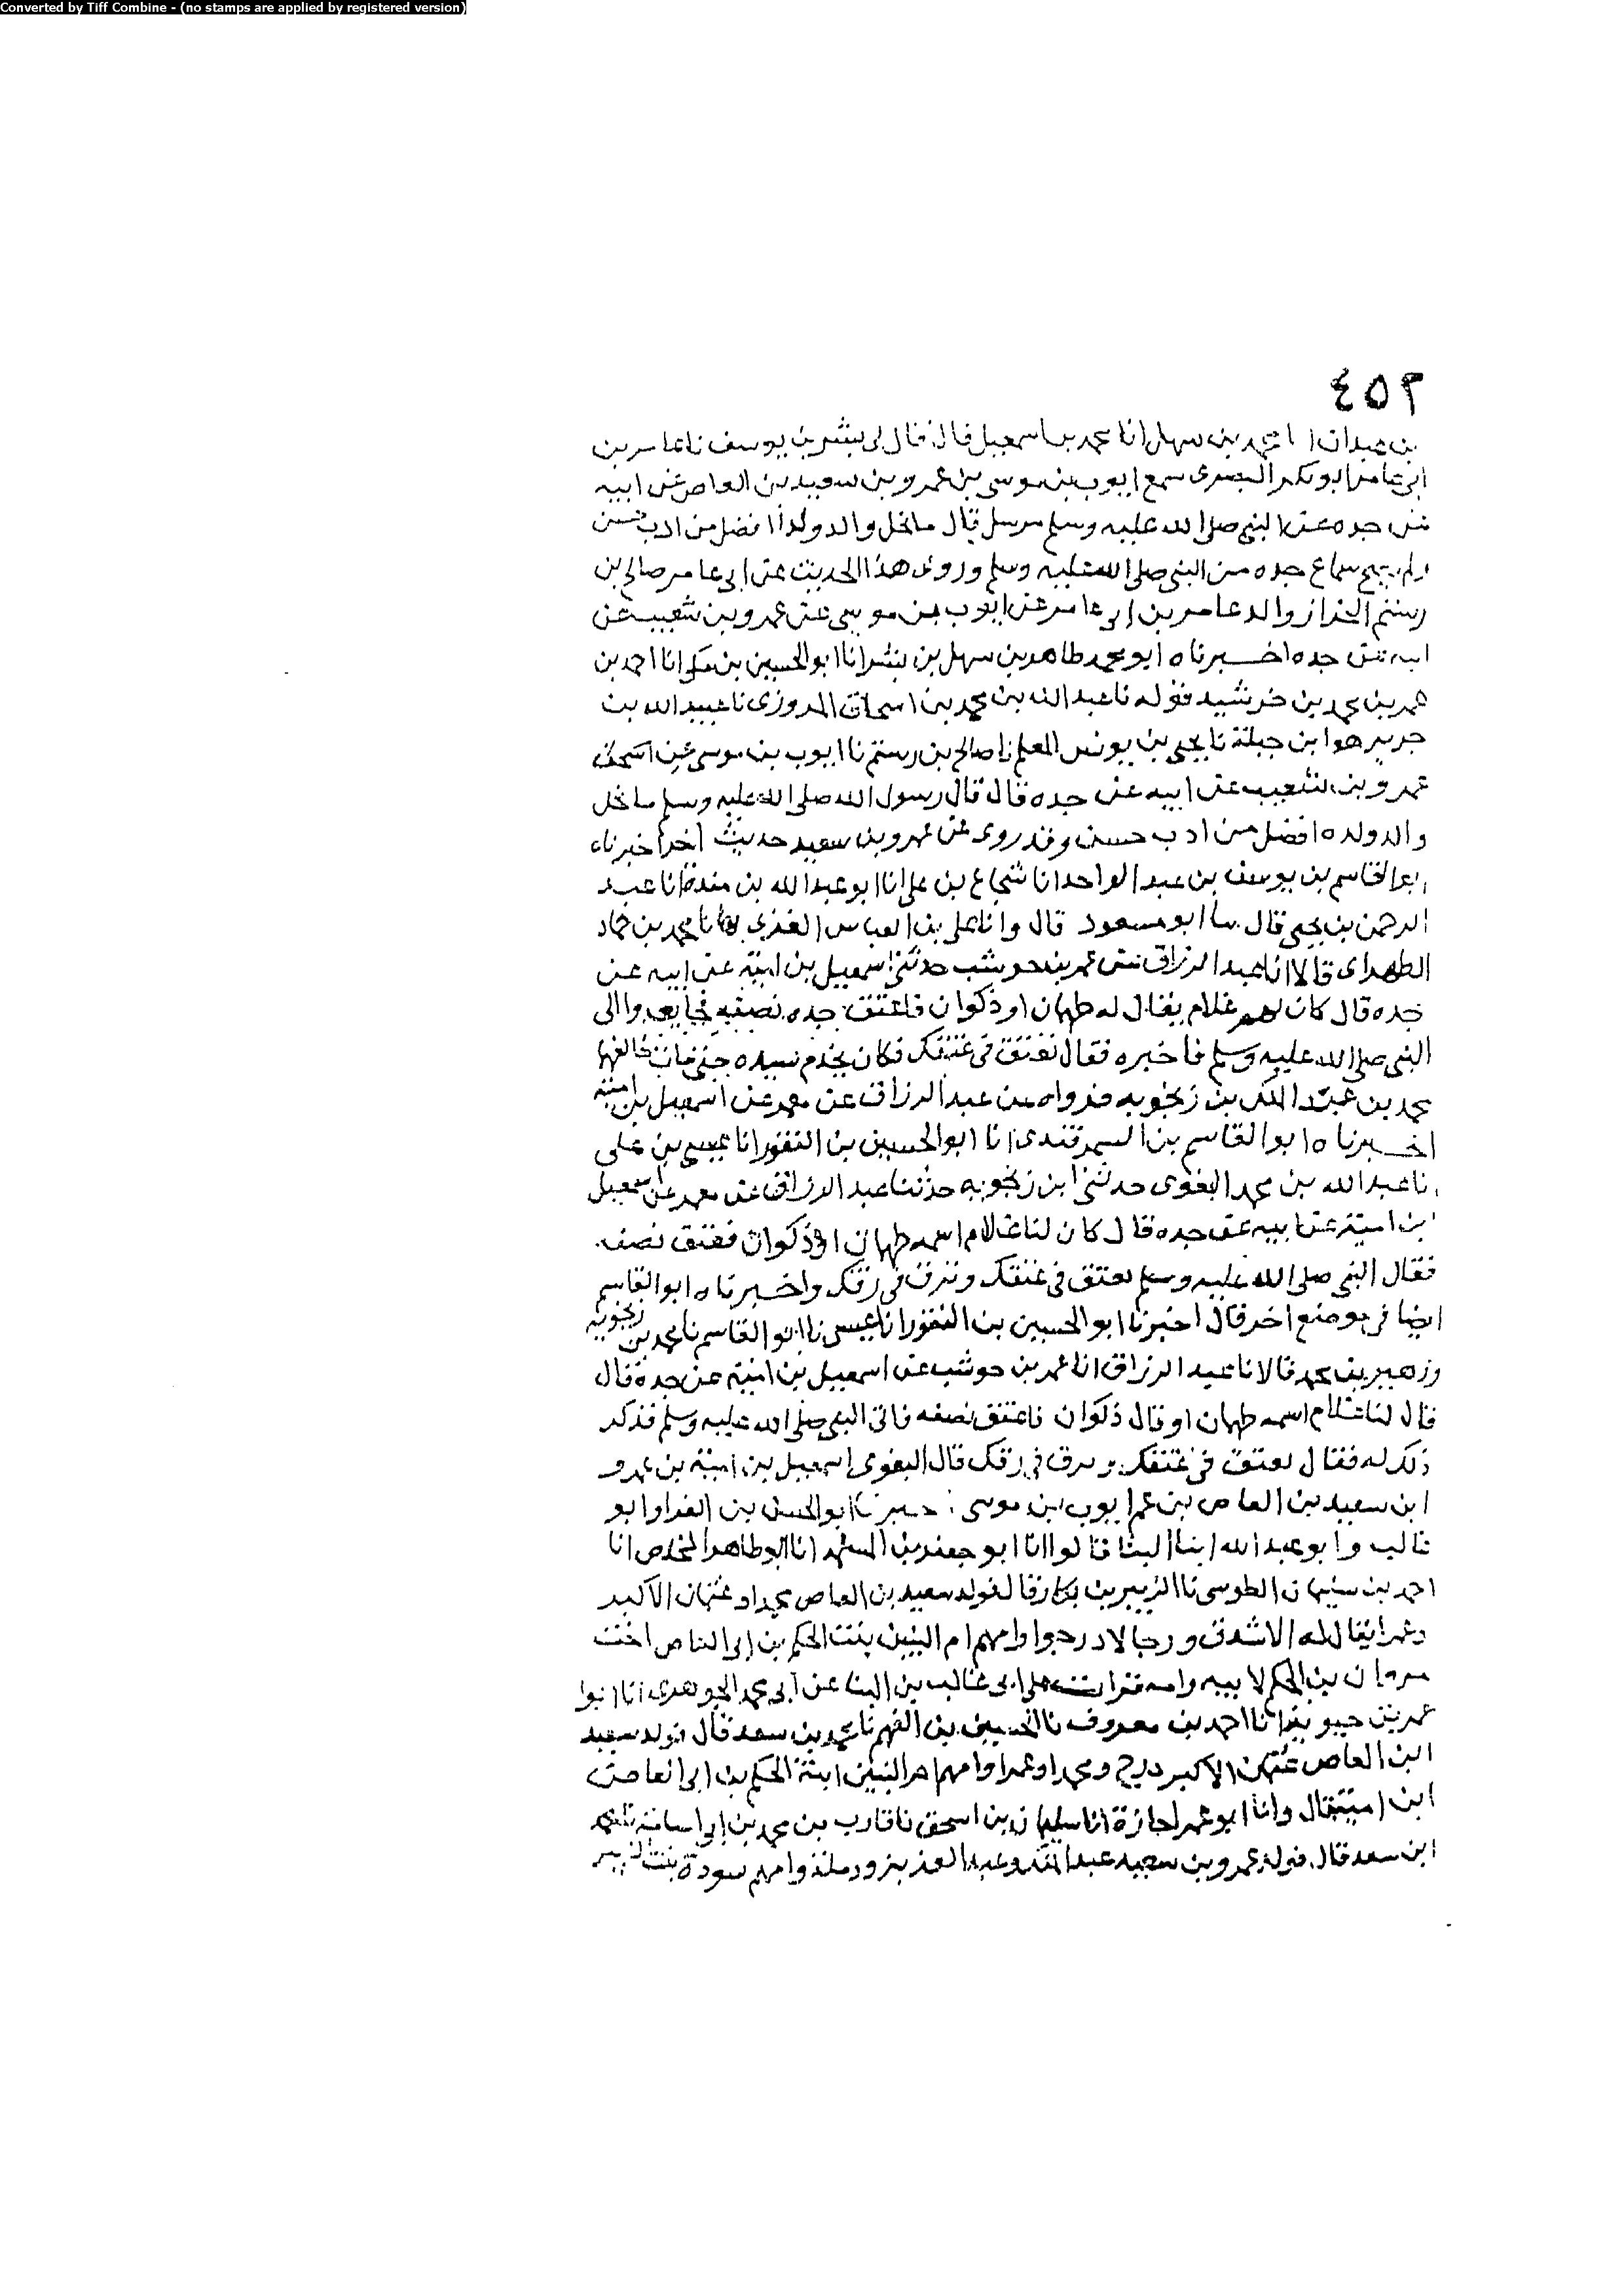 Converted by Tiff Combine - (no stamps are applied by registered version)
٤٥٣
بن عبدان انا محمد بن سهل انا محمد بن اسمعيل قال قال لى بشر بن يوسف نا عامر بن
ابى عامر ابو بكر البصرى سمع ايوب بن موسى بن عمرو بن سعيد بن العاص عن ابيه
عن جده عن النبى صلى الله عليه وسلم مرسل قال ما نحل والد ولدا افضل من ادب حسن
ولم يصح سماع جده من النبى صلى الله عليه وسلم وروى هذا الحديث عن ابى عامر صالح بن
رستم الخزاز والد عامر بن ابى عامر عن ايوب بن موسى عن عمرو بن شعيب عن
ابيه عن جده اخبرناه ابو محمد طاهر بن سهل بن بشر انا ابو الحسين بن مكى انا احمد بن
عمر بن محمد بن خرشيد قوله نا عبد الله بن محمد بن اسحاق المروزى نا عبيد الله بن
جرير هو ابن جبلة نا يحيى بن يونس المعلم نا صالح بن رستم نا ايوب بن موسى عن
عمرو بن شعيب عن ابيه عن جده قال قال رسول الله صلى الله عليه وسلم ما نحل
والد ولده افضل من ادب حسن وقد روى عن عمرو بن سعيد حديث اخر اخبرناه
ابو القاسم بن يوسف بن عبد الواحد انا شجاع بن على انا ابو عبد الله بن مندة انا عبد
الرحمن بن يحيى قال نا ابو مسعود قال وانا على بن العباس الغزى بها نا محمد بن حماد
الطهرانى قالا انا عبد الرزاق عن عمر بن حوشب حدثنى اسمعيل بن امية عن ابيه عن
جده قال كان لهم غلام يقال له طهمان او ذكوان فاعتق جده نصفه الى
النبى صلى الله عليه وسلم فاخبره فقال تعتق فى عتقك فكان يخدم سيده حتى مات خالفهما
محمد بن عبد الملك بن زنجويه فرواه عن عبد الرزاق عن معمر عن اسمعيل بن امية
اخبرناه ابو القاسم بن السمرقندى انا ابو الحسين بن النقور انا عيسى بن على
نا عبد الله بن محمد البغوى حدثنى ابن زنجويه حدثنا عبد الرزاق عن معمر عن اسمعيل
ابن امية عن ابيه عن جده قال كان لنا غلام اسمه طهمان او ذكوان فعتق نصفه
فقال النبى صلى الله عليه وسلم تعتق فى عتقك وترق فى رقك واخبرناه ابو القاسم
ايضا فى موضع اخر قال اخبرنا ابو الحسين بن النقور انا عيسى نا ابو القاسم نا محمد بن زنجويه
وزهير بن محمد قالا نا عبد الرزاق انا عمر بن حوشب عن اسمعيل بن امية عن جده قال
قال لنا غلام اسمه طهمان او قال ذكوان فاعتق نصفه فاتى النبى صلى الله عليه وسلم فذكر
ذلك له فقال تعتق فى عتقك وترق فى رقك قال البغوى اسمعيل بن امية بن عمرو
ابن سعيد بن العاص بن عم ايوب بن موسى اخبرنا ابو الحسين بن الفرا وابو
غالب وابو عبد الله ابنا البنا قالوا انا ابو جعفر بن المسلمة انا ابو طاهر المخلص انا
احمد بن سليمان الطوسى نا الزبير بن بكار قال فولد سعيد بن العاص محمدا وعثمان الاكبر
وعمرا يقال له الاشدق ورجالا درجوا وامهم ام البنين بنت الحكم بن ابى العاص اخت
مروان بن الحكم لابيه وامه قرات على ابى غالب بن البنا عن ابى محمد الجوهرى انا ابو
عمر بن حيويه انا احمد بن معروف نا الحسين بن الفهم نا محمد بن سعد قال فولد سعيد
ابن العاص عثمان الاكبر درج ومحمدا وعمرا وامهم ام البنين ابنة الحكم بن ابى العاص
ابن امية قال وانا ابو عمر اجازة انا سليمان بن اسحق نا قارب بن محمد بن ابى اسامة نا محمد
ابن سعد قال فولد عمرو بن سعيد عبد الملك وعبد العزيز ورملة وامهم سودة بنت الزبير